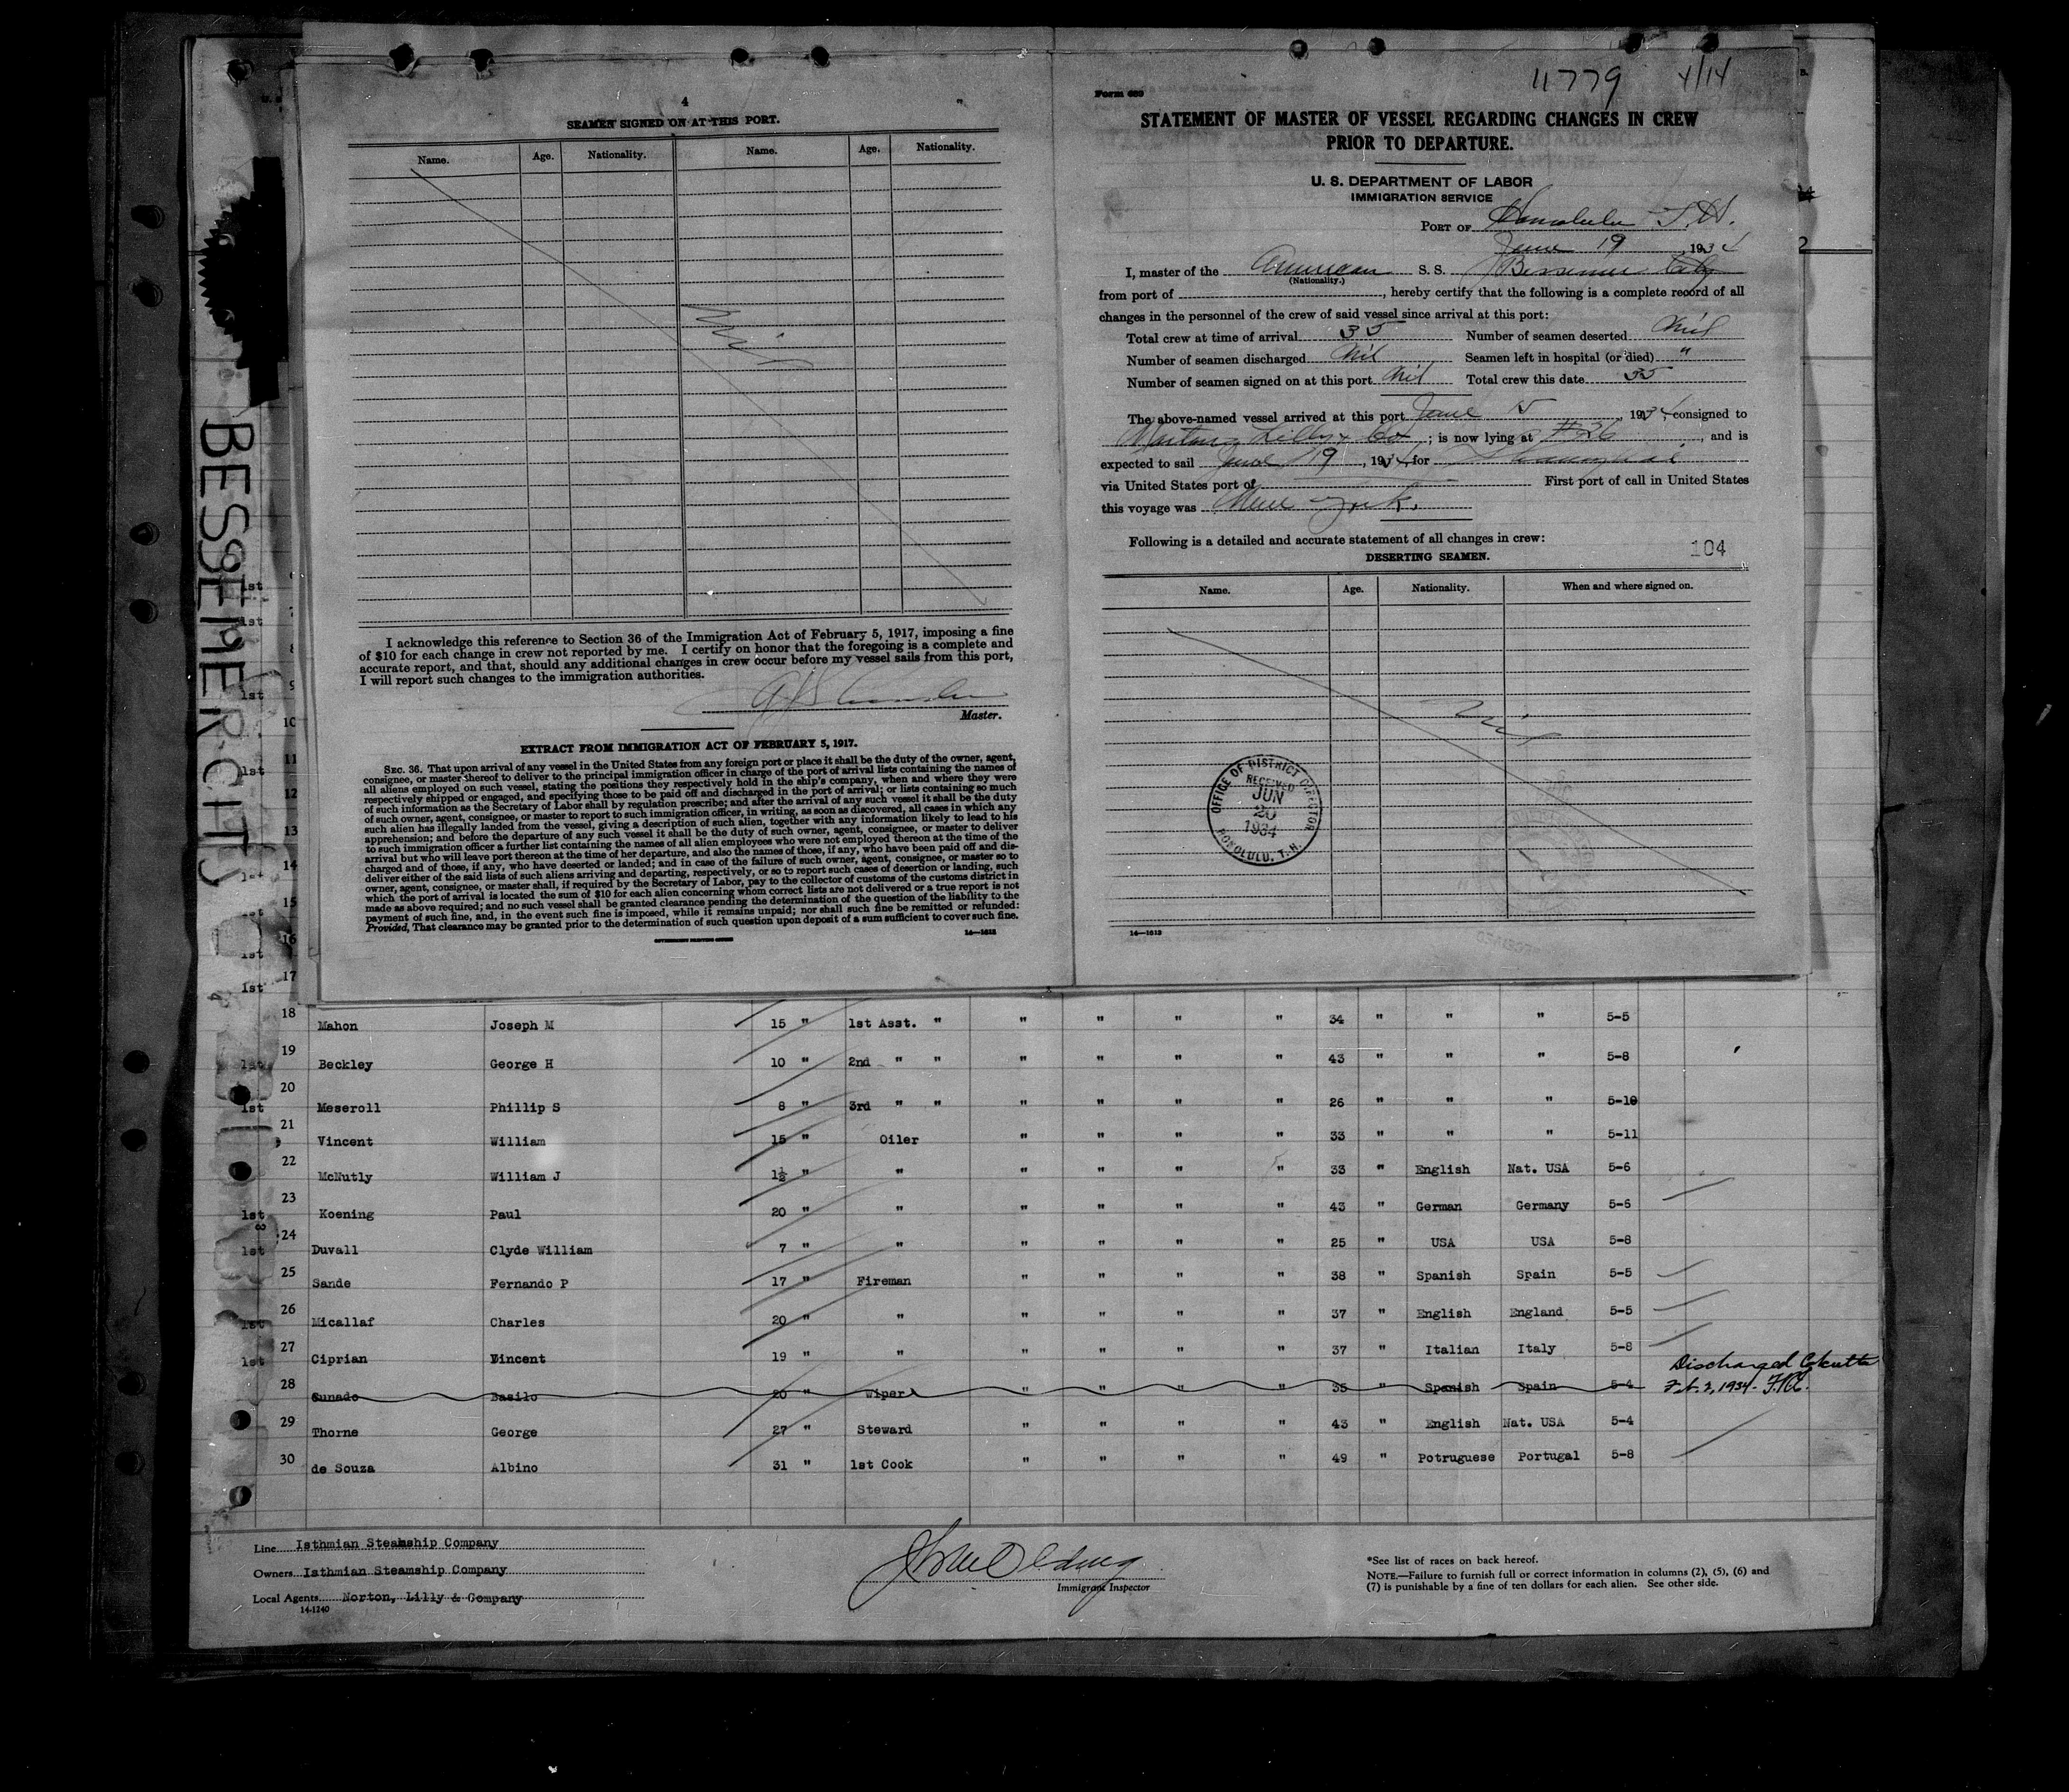 BESSEMER CITY
4
SEAMEN SIGNED ON AT THIS PORT.
Name. Age. Nationality. Name. Age. Nationality.
Nil
I acknowledge this reference to Section 36 of the Immigration Act of February 5, 1917, imposing a fine
of $10 for each change in crew not reported by me. I certify on honor that the foregoing is a complete and
accurate report, and that, should any additional changes in crew occur before my vessel sails from this port,
I will report such changes to the immigration authorities.
Master.
EXTRACT FROM IMMIGRATION ACT OF FEBRUARY 5, 1917.
SEC. 36. That upon arrival of any vessel in the United States from any foreign port or place it shall be the duty of the owner, agent,
consignee, or master thereof to deliver to the principal immigration officer in charge of the port of arrival lists containing the names of
all aliens employed on such vessel, stating the positions they respectively hold in the ship's company, when and where they were
respectively shipped or engaged, and specifying those to be paid off and discharged in the port of arrival; or lists containing so much
of such information as the Secretary of Labor shall by regulation prescribe; and after the arrival of any such vessel it shall be the duty
of such owner, agent, consignee, or master to report to such immigration officer, in writing, as soon as discovered, all cases in which any
such alien has illegally landed from the vessel, giving a description of such alien, together with any information likely to lead to his
apprehension; and before the departure of any such vessel it shall be the duty of such owner, agent, consignee, or master to deliver
to such immigration officer a further list containing the names of all alien employees who were not employed thereon at the time of the
arrival but who will leave port thereon at the time of her departure, and also the names of those, if any, who have been paid off and dis-
charged and of those, if any, who have deserted or landed; and in case of the failure of such owner, agent, consignee, or master so to
deliver either of the said lists of such aliens arriving and departing, respectively, or so to report such cases of desertion or landing, such
owner, agent, consignee, or master shall, if required by the Secretary of Labor, pay to the collector of customs of the customs district in
which the port of arrival is located the sum of $10 for each alien concerning whom correct lists are not delivered or a true report is not
made as above required; and no such vessel shall be granted clearance pending the determination of the question of the liability to the
payment of such fine, and, in the event such fine is imposed, while it remains unpaid; nor shall such fine be remitted or refunded:
Provided, That clearance may be granted prior to the determination of such question upon deposit of a sum sufficient to cover such fine.
GOVERNMENT PRINTING OFFICE 14—1613
11779 4/14
Form 689
STATEMENT OF MASTER OF VESSEL REGARDING CHANGES IN CREW
PRIOR TO DEPARTURE.
U. S. DEPARTMENT OF LABOR
IMMIGRATION SERVICE
PORT OF Honolulu T.H.
June 19, 1934
I, master of the American S. S. Bessemer City
(Nationality.)
from port of , hereby certify that the following is a complete record of all
changes in the personnel of the crew of said vessel since arrival at this port:
Total crew at time of arrival 35 Number of seamen deserted Nil
Number of seamen discharged Nil Seamen left in hospital (or died) "
Number of seamen signed on at this port Nil Total crew this date 35
The above-named vessel arrived at this port June 15, 1934, consigned to
Norton, Lilly & Co.; is now lying at #26, and is
expected to sail June 19, 1934, for Shanghai
via United States port of First port of call in United States
this voyage was New York.
Following is a detailed and accurate statement of all changes in crew:
104
DESERTING SEAMEN.
Name. Age. Nationality. When and where signed on.
Nil
OFFICE OF DISTRICT DIRECTOR
RECEIVED
JUN
20
1934
HONOLULU, T. H.
14—1613
18 Mahon Joseph M 15 " 1st Asst. " " " " " 34 " " " 5-5
19 Beckley George H 10 " 2nd " " " " " " 43 " " " 5-8
20 Meseroll Phillip S 8 " 3rd " " " " " " 26 " " " 5-10
21 Vincent William 15 " Oiler " " " " 33 " " " 5-11
22 McNutly William J 1½ " " " " " " 33 " English Nat. USA 5-6
23 Koening Paul 20 " " " " " " 43 " German Germany 5-6
24 Duvall Clyde William 7 " " " " " " 25 " USA USA 5-8
25 Sande Fernando P 17 " Fireman " " " " 38 " Spanish Spain 5-5
26 Micallaf Charles 20 " " " " " " 37 " English England 5-5
27 Ciprian Vincent 19 " " " " " " 37 " Italian Italy 5-8
28 Sunado Basilo 20 " Wiper " " " " 35 " Spanish Spain 5-4 Discharged Calcutta
Feb. 3, 1934.
29 Thorne George 27 " Steward " " " " 43 " English Nat. USA 5-4
30 de Souza Albino 31 " 1st Cook " " " " 49 " Potruguese Portugal 5-8
Line Isthmian Steamship Company
Owners Isthmian Steamship Company
Local Agents Norton, Lilly & Company
14-1240
Immigrant Inspector
*See list of races on back hereof.
NOTE.—Failure to furnish full or correct information in columns (2), (5), (6) and
(7) is punishable by a fine of ten dollars for each alien. See other side.